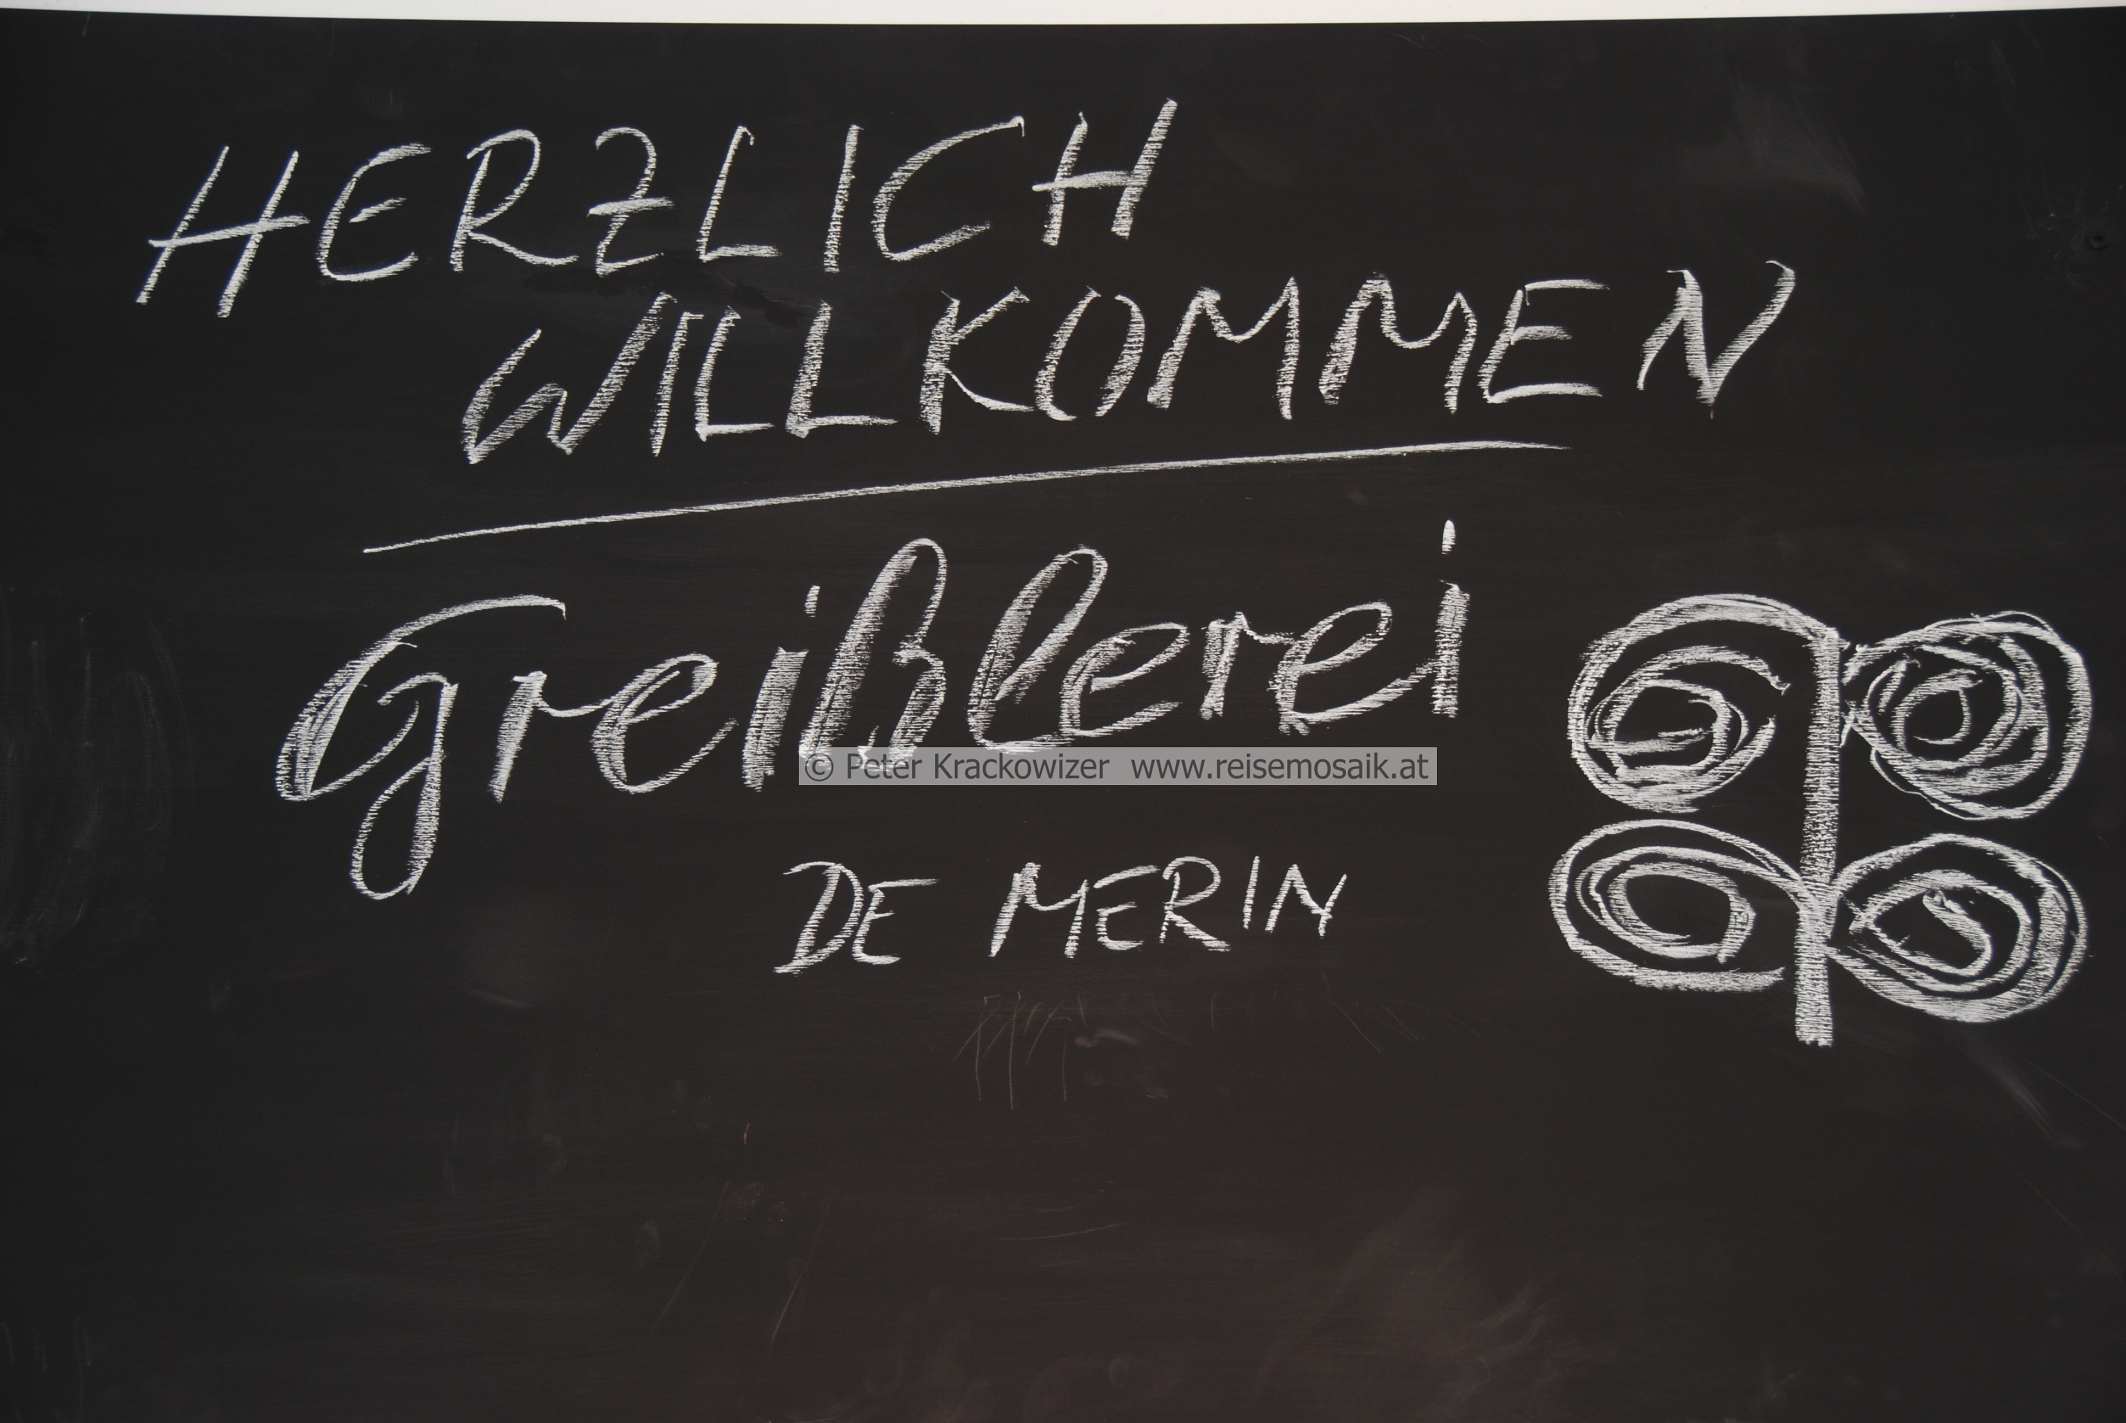 HERZLICH
WILLKOMMEN
Greißlerei
© Peter Krackowizer www.reisemosaik.at
DE MERIN